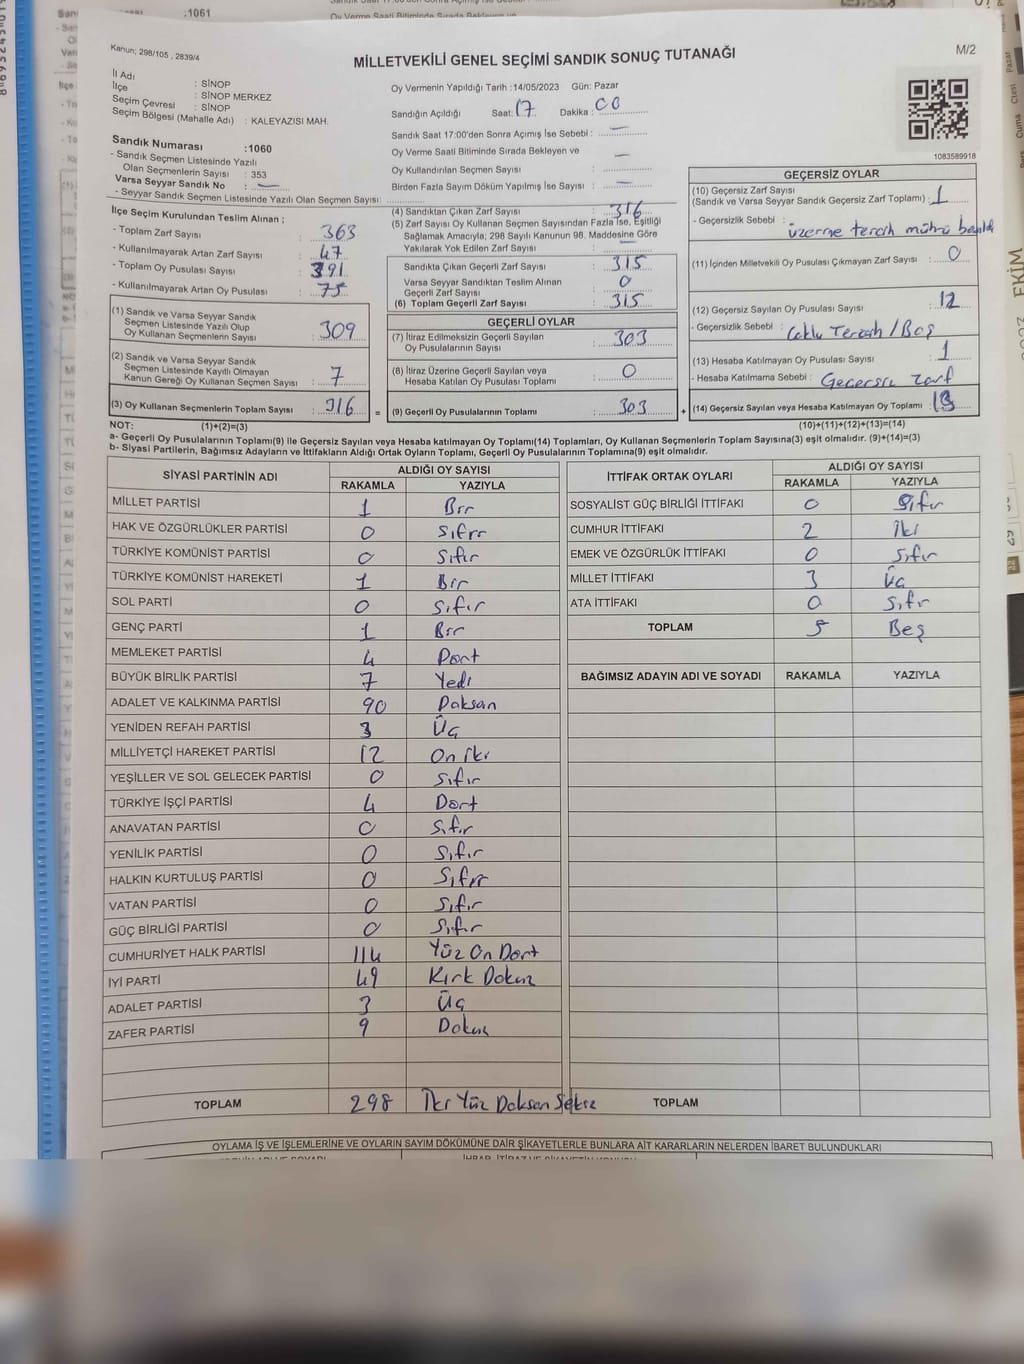 :1061
Kanun; 298/105 , 2839/4
MİLLETVEKİLİ GENEL SEÇİMİ SANDIK SONUÇ TUTANAĞI
M/2
İl Adı : SİNOP
İlçe : SİNOP MERKEZ
Seçim Çevresi : SİNOP
Seçim Bölgesi (Mahalle Adı) : KALEYAZISI MAH.
Sandık Numarası :1060
- Sandık Seçmen Listesinde Yazılı
Olan Seçmenlerin Sayısı : 353
Varsa Seyyar Sandık No : —
- Seyyar Sandık Seçmen Listesinde Yazılı Olan Seçmen Sayısı:
Oy Vermenin Yapıldığı Tarih :14/05/2023 Gün: Pazar
Sandığın Açıldığı Saat: 17 Dakika : 00
Sandık Saat 17:00'den Sonra Açımış İse Sebebi : —
Oy Verme Saati Bitiminde Sırada Bekleyen ve
Oy Kullandırılan Seçmen Sayısı : —
Birden Fazla Sayım Döküm Yapılmış İse Sayısı : —
1083589918
İlçe Seçim Kurulundan Teslim Alınan ;
- Toplam Zarf Sayısı : 363
- Kullanılmayarak Artan Zarf Sayısı : 47
- Toplam Oy Pusulası Sayısı : 391
- Kullanılmayarak Artan Oy Pusulası : 75
(1) Sandık ve Varsa Seyyar Sandık
Seçmen Listesinde Yazılı Olup
Oy Kullanan Seçmenlerin Sayısı : 309
(2) Sandık ve Varsa Seyyar Sandık
Seçmen Listesinde Kayıtlı Olmayan
Kanun Gereği Oy Kullanan Seçmen Sayısı : 7
(3) Oy Kullanan Seçmenlerin Toplam Sayısı : 316 =
(4) Sandıktan Çıkan Zarf Sayısı : 316
(5) Zarf Sayısı Oy Kullanan Seçmen Sayısından Fazla İse, Eşitliği
Sağlamak Amacıyla; 298 Sayılı Kanunun 98. Maddesine Göre
Yakılarak Yok Edilen Zarf Sayısı : —
Sandıkta Çıkan Geçerli Zarf Sayısı : 315
Varsa Seyyar Sandıktan Teslim Alınan
Geçerli Zarf Sayısı : 0
(6) Toplam Geçerli Zarf Sayısı : 315
GEÇERLİ OYLAR
(7) İtiraz Edilmeksizin Geçerli Sayılan
Oy Pusulalarının Sayısı : 303
(8) İtiraz Üzerine Geçerli Sayılan veya
Hesaba Katılan Oy Pusulası Toplamı : 0
(9) Geçerli Oy Pusulalarının Toplamı : 303 +
GEÇERSİZ OYLAR
(10) Geçersiz Zarf Sayısı
(Sandık ve Varsa Seyyar Sandık Geçersiz Zarf Toplamı) : 1
- Geçersizlik Sebebi :
üzerine tercih mührü basıldı
(11) İçinden Milletvekili Oy Pusulası Çıkmayan Zarf Sayısı : 0
(12) Geçersiz Sayılan Oy Pusulası Sayısı : 12
- Geçersizlik Sebebi : Çoklu Tercih / Boş
(13) Hesaba Katılmayan Oy Pusulası Sayısı : 1
- Hesaba Katılmama Sebebi : Geçersiz zarf
(14) Geçersiz Sayılan veya Hesaba Katılmayan Oy Toplamı : 13
NOT: (1)+(2)=(3) (10)+(11)+(12)+(13)=(14)
a- Geçerli Oy Pusulalarının Toplamı(9) ile Geçersiz Sayılan veya Hesaba katılmayan Oy Toplamı(14) Toplamları, Oy Kullanan Seçmenlerin Toplam Sayısına(3) eşit olmalıdır. (9)+(14)=(3)
b- Siyasi Partilerin, Bağımsız Adayların ve İttifakların Aldığı Ortak Oyların Toplamı, Geçerli Oy Pusulalarının Toplamına(9) eşit olmalıdır.
SİYASİ PARTİNİN ADI ALDIĞI OY SAYISI
RAKAMLA YAZIYLA
MİLLET PARTİSİ 1 Bir
HAK VE ÖZGÜRLÜKLER PARTİSİ 0 Sıfır
TÜRKİYE KOMÜNİST PARTİSİ 0 Sıfır
TÜRKİYE KOMÜNİST HAREKETİ 1 Bir
SOL PARTİ 0 Sıfır
GENÇ PARTİ 1 Bir
MEMLEKET PARTİSİ 4 Dört
BÜYÜK BİRLİK PARTİSİ 7 Yedi
ADALET VE KALKINMA PARTİSİ 90 Doksan
YENİDEN REFAH PARTİSİ 3 Üç
MİLLİYETÇİ HAREKET PARTİSİ 12 On iki
YEŞİLLER VE SOL GELECEK PARTİSİ 0 Sıfır
TÜRKİYE İŞÇİ PARTİSİ 4 Dört
ANAVATAN PARTİSİ 0 Sıfır
YENİLİK PARTİSİ 0 Sıfır
HALKIN KURTULUŞ PARTİSİ 0 Sıfır
VATAN PARTİSİ 0 Sıfır
GÜÇ BİRLİĞİ PARTİSİ 0 Sıfır
CUMHURİYET HALK PARTİSİ 114 Yüz On Dört
İYİ PARTİ 49 Kırk Dokuz
ADALET PARTİSİ 3 Üç
ZAFER PARTİSİ 9 Dokuz
TOPLAM 298 İki Yüz Doksan Sekiz
İTTİFAK ORTAK OYLARI ALDIĞI OY SAYISI
RAKAMLA YAZIYLA
SOSYALİST GÜÇ BİRLİĞİ İTTİFAKI 0 Sıfır
CUMHUR İTTİFAKI 2 İki
EMEK VE ÖZGÜRLÜK İTTİFAKI 0 Sıfır
MİLLET İTTİFAKI 3 Üç
ATA İTTİFAKI 0 Sıfır
TOPLAM 5 Beş
BAĞIMSIZ ADAYIN ADI VE SOYADI RAKAMLA YAZIYLA
TOPLAM
OYLAMA İŞ VE İŞLEMLERİNE VE OYLARIN SAYIM DÖKÜMÜNE DAİR ŞİKAYETLERLE BUNLARA AİT KARARLARIN NELERDEN İBARET BULUNDUKLARI
EKİM
Pazar
Ctesi
Cuma